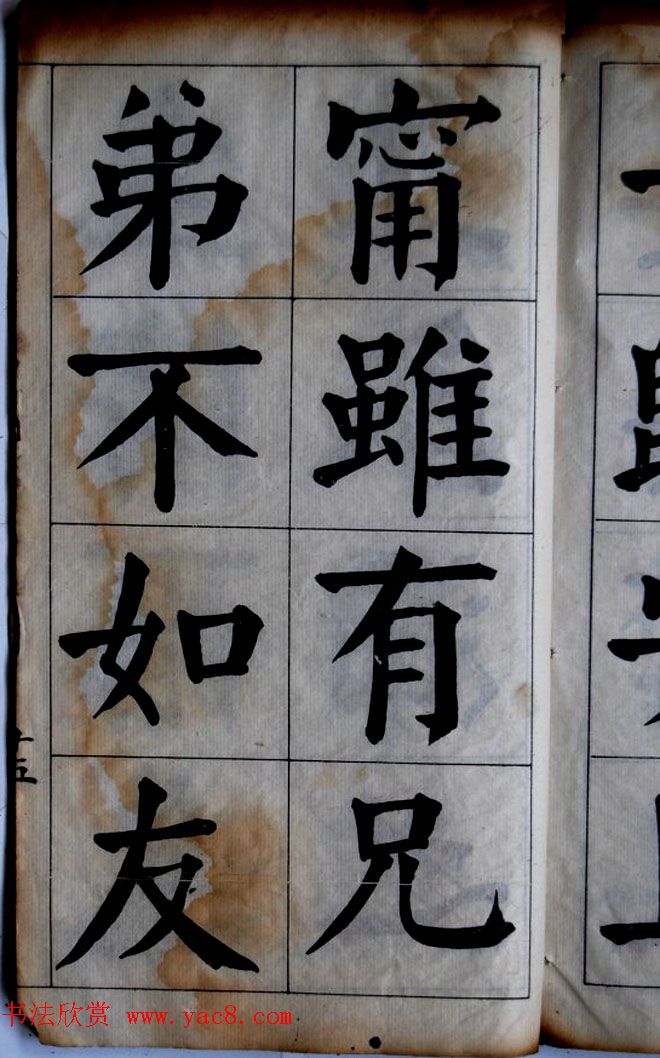 甯雖有兄
弟不如友
十五
书法欣赏 www.yac8.com